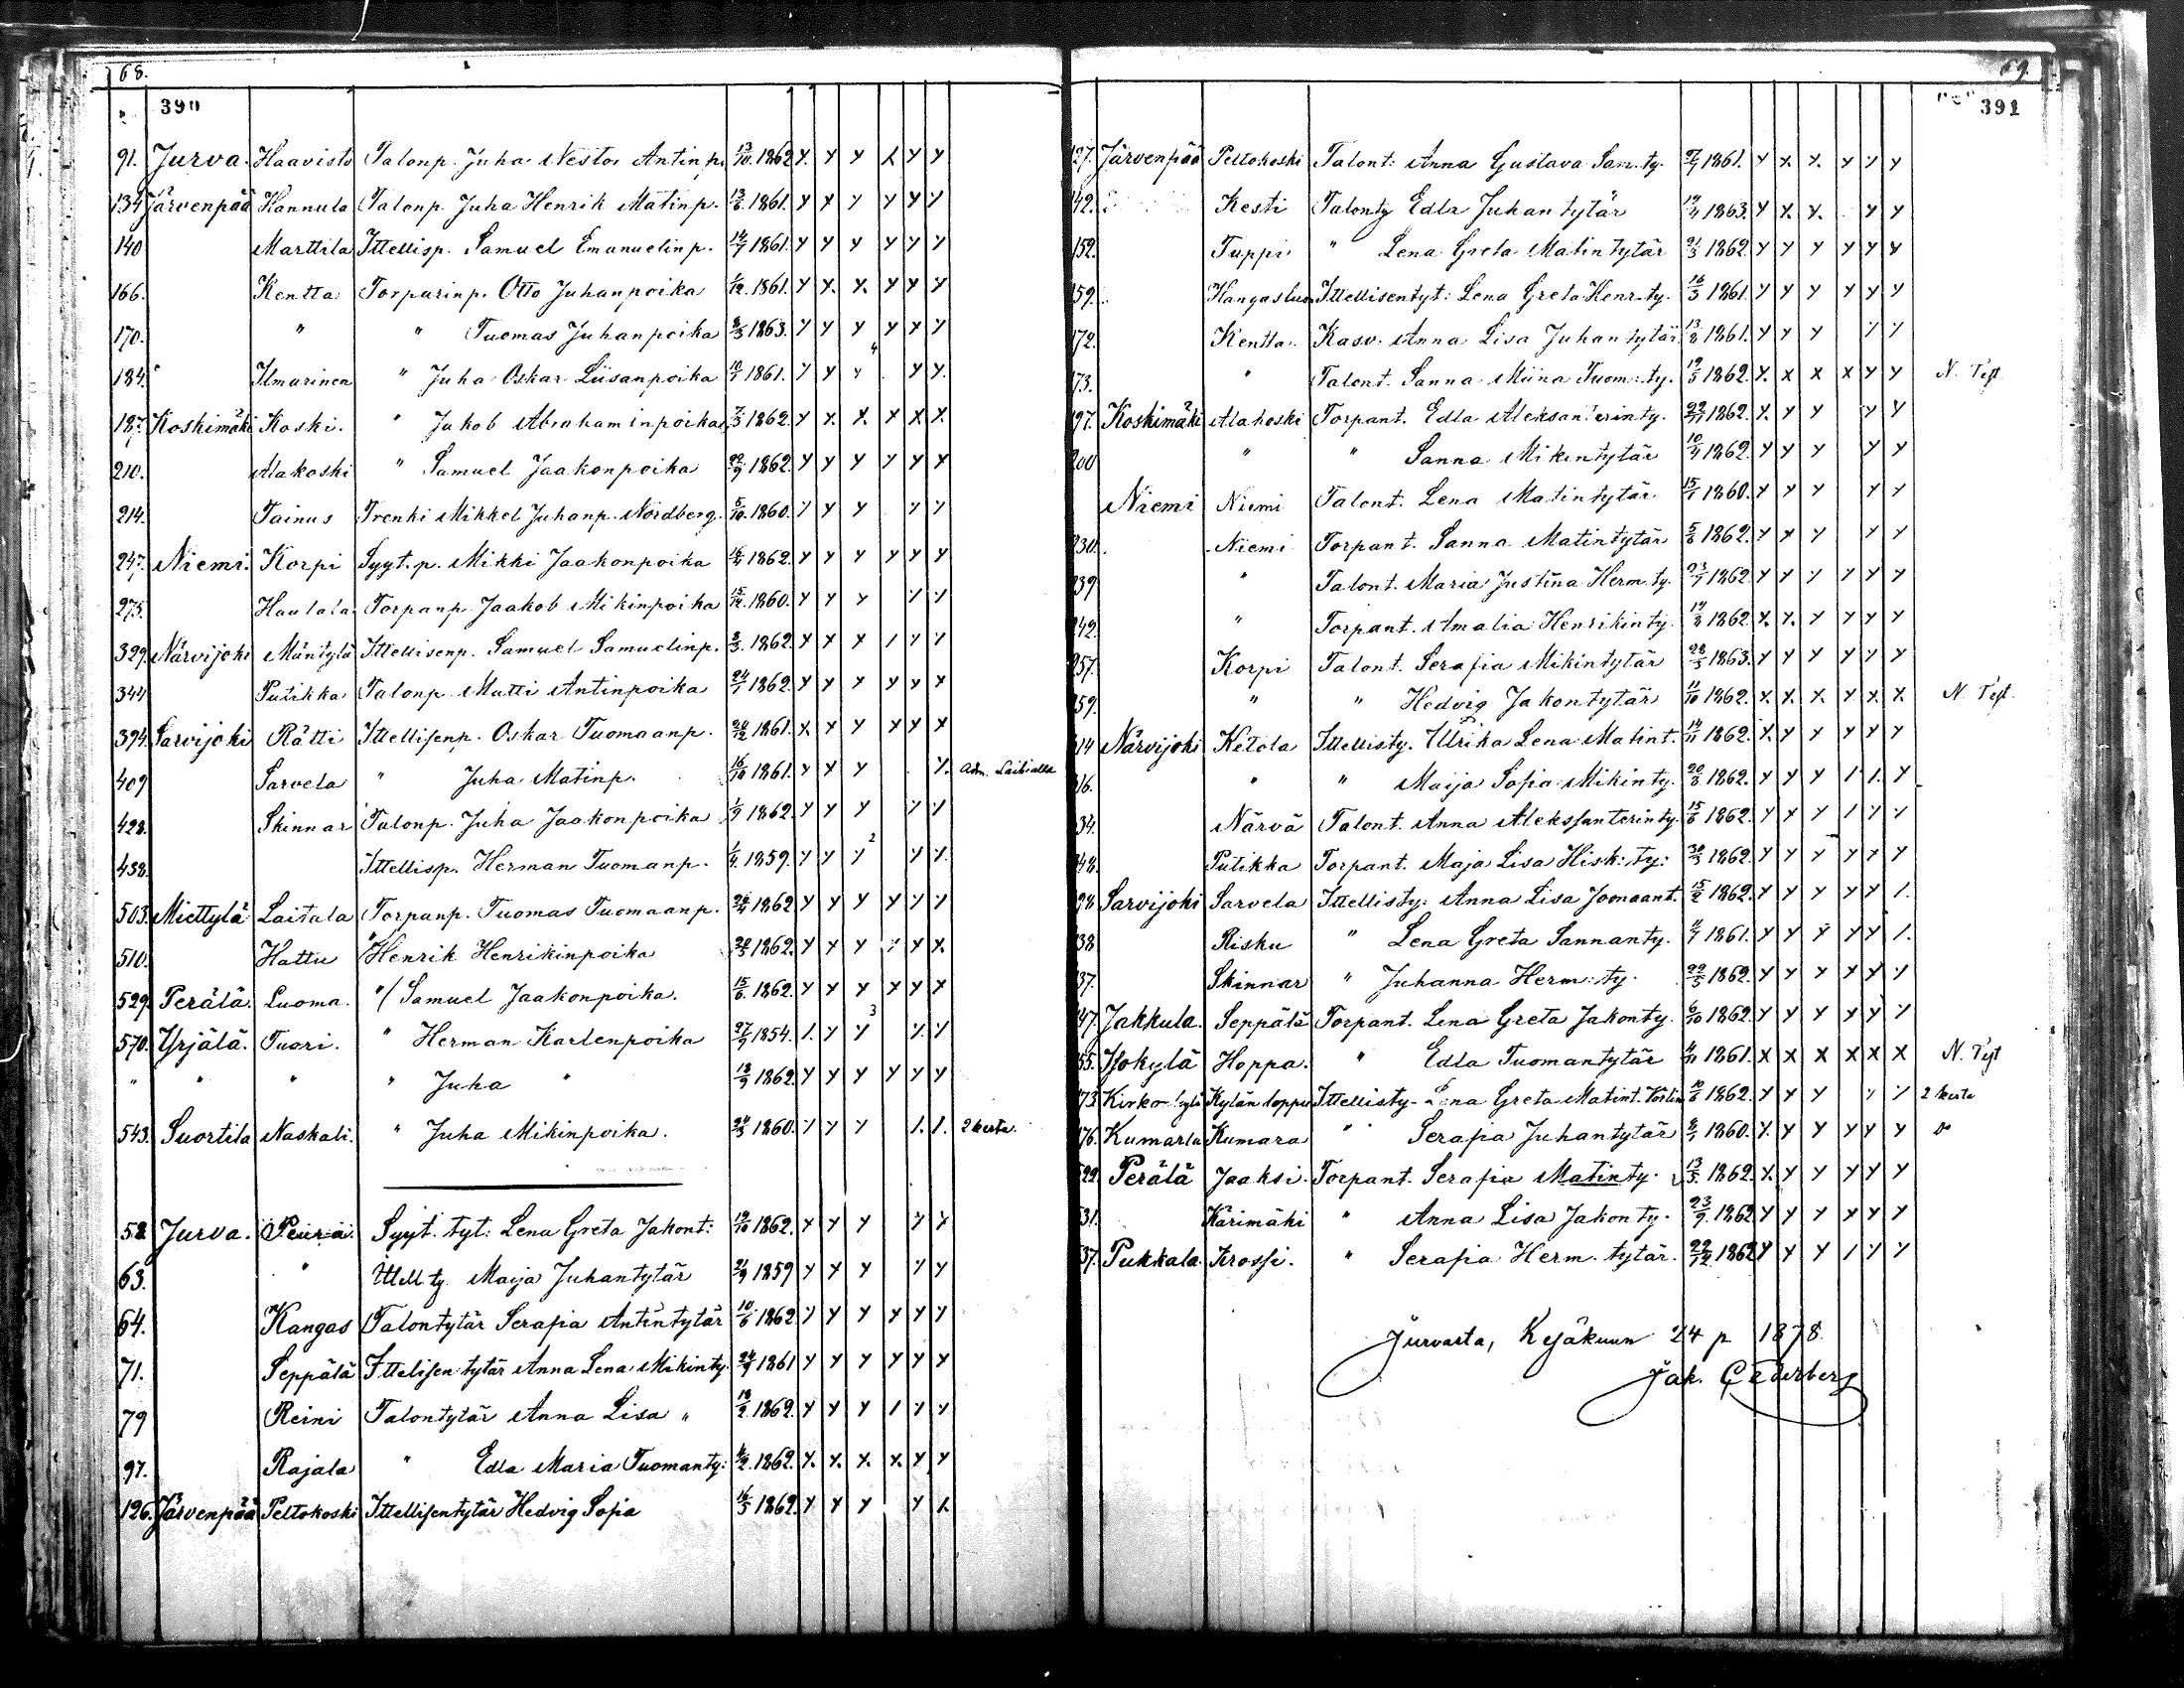 68.
390
91. Jurva. Haavisto Talonp. Juha Nestor Antinp. 13/10. 1862
134 Järvenpää Hannula Talonp. Juha Henrik Matinp. 13/6. 1861.
140 Marttila Ittellisp. Samuel Emanuelinp. 14/7 1861.
166. Kentta Torparinp. Otto Juhanpoika 1/12. 1861.
170. " " Tuomas Juhanpoika 8/3 1863.
184. Ilmarinen " Juha Oskar Liisanpoika 1861. 4
187. Koskimäki Koski. " Jakob Abrahaminpoika 7/3 1862.
210. Alakoski " Samuel Jaakonpoika 22/9 1862.
214. Tainus Trenki Mikkel Juhanp. Nordberg. 5/10. 1860.
247. Niemi. Korpi Syyt. p. Mikki Jaakonpoika 16/4 1862.
273. Hautala Torpanp. Jaakob Mikinpoika 15/12. 1860.
329. Närvijoki Mäntylä Ittellisenp. Samuel Samuelinp. 3/3. 1862.
344 Putikka Talonp. Matti Antinpoika 24/1 1862.
394. Sarvijoki Rätti Ittellisenp. Oskar Tuomaanp. 24/12 1861.
409 Sarvela " Juha Matinp. 16/10 1861.
428. Skinnar Talonp. Juha Jaakonpoika 1/9 1862.
438. Ittellisp. Herman Tuomanp. 1/4. 1859. 2
503. Miettylä Laitala Torpanp. Tuomas Tuomaanp. 24/4 1862
510. Hattu Henrik Henrikinpoika 1862.
529. Perälä. Luoma. "/ Samuel Jaakonpoika. 15/6. 1862.
570. Yrjälä. Tuori. " Herman Karlenpoika 27/9 1854. 3
" " " " Juha " 13/9 1862.
543. Suortila Naskali. " Juha Mikinpoika. 24/3 1860. 2 kerta.
58 Jurva. Peurä. Syyt. tyt: Lena Greta Jakont: 19/10 1862.
63. " Ittell. ty. Maija Juhantytär 21/9 1859
64. Kangas Talontytär Serafia Antintytär 10/6 1862
71. Seppälä Ittelisen tytär Anna Lena Mikinty. 24/9 1861
79 Reini Talontytär Anna Lisa " 13/2. 1862.
97. Rajala " Edla Maria Tuomanty: 4/2. 1862.
126. Järvenpää Peltokoski Ittellisentytär Hedvig Sofia 16/5 1862.
69.
391
127. Järvenpää Peltokoski Talont: Anna Gustava Sam. ty. 1861.
142. Kesti Talonty Edla Juhantytär 1863.
152. Tuppi " Lena Greta Matintytär 21/3 1862
159. Kangasluo Ittellisentyt: Lena Greta Henr. ty. 16/3 1861
172. Kentta. Kasv. Anna Lisa Juhantytär 13/8 1861.
173. " Talont. Sanna Miina Tuom: ty. 19/5 1862. N. Test
197. Koskimäki Alakoski Torpant. Edla Aleksanterinty. 22/11 1862.
200 " " Sanna Mikintytär 10/4 1862.
Niemi Niemi Talont. Lena Matintytär 15/1 1860.
230. Niemi Torpant. Sanna Matintytär 5/8 1862.
239 " Talont. Maria Justina Herm. ty. 23/7 1862
242. " Torpant. Amalia Henrikinty. 19/8 1862.
257. Korpi Talont. Serafia Mikintytär 28/3 1863.
259. " " Hedvig Jakontytär 11/10 1862. N. Test.
314 Närvijoki Ketola Ittellisty. Ulrika Lena Matint. 14/11 1862.
316. " " Maija Sofia Mikinty. 20/8 1862.
334. Närvä Talont. Anna Aleksanterinty. 15/6 1862.
348. Putikka Torpant. Maja Lisa Hisk: ty: 30/3 1862.
398 Sarvijoki Sarvela Ittellisty: Anna Lisa Joonaant. 15/2 1862.
438 Risku " Lena Greta Sannanty. 1861.
437. Skinnar " Juhanna Herm: ty. 22/5 1862.
447. Jakkula. Seppälä Torpant. Lena Greta Jakonty. 6/10 1862.
455. Isokylä Hoppa. " Edla Tuomantytär 4/10 1861. N. Tyt
473 Kirkonkylä Kylän loppu Ittellisty. Lena Greta Matint. 1862. 2 kerta
476. Kumarla Kumara " Serafia Juhantytär 8/1 1860.
522. Perälä Jaaksi. Torpant. Serafia Matinty. 13/5. 1862.
531. Kärimäki " Anna Lisa Jakonty. 23/9. 1862
537. Pukkala. Krossi. " Serafia Herm. tytär. 22/12 1862
Jurvasta, Kesäkuun 24 p 1878.
Jak. Cederberg